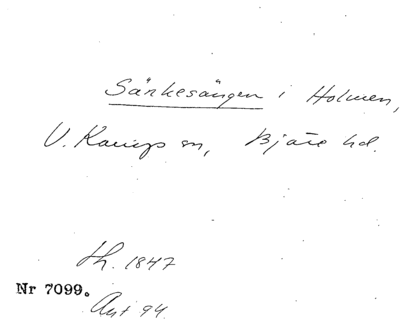 Särkesången i Holmen,
V. Karups sn, Bjäre hd.
th. 1847
Nr 7099.
Ant 94